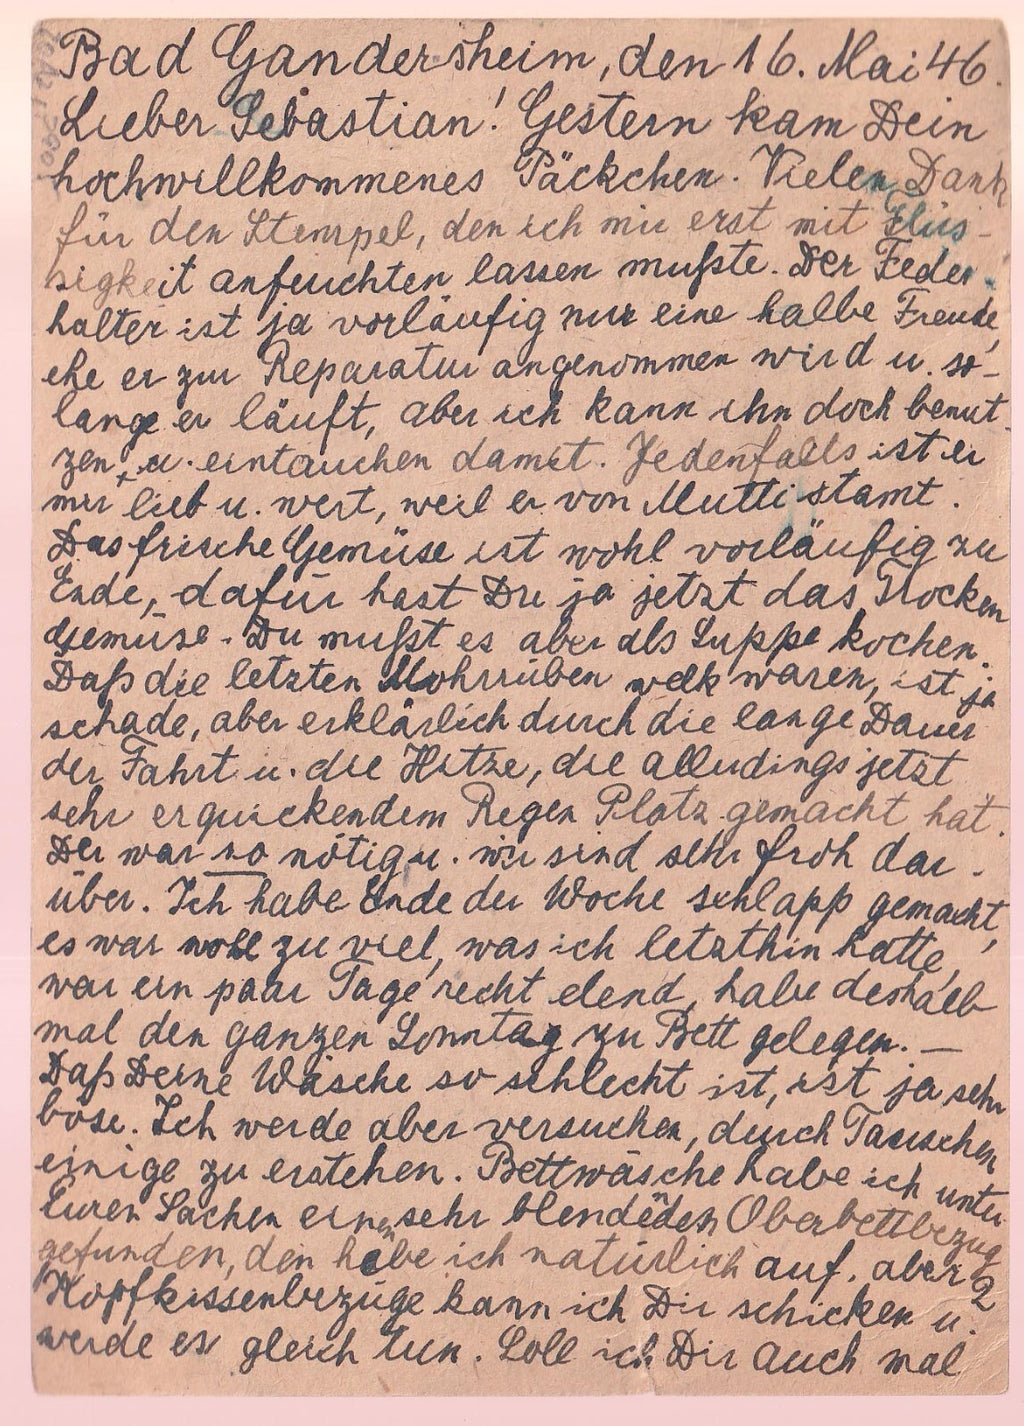 Bad Gandersheim, den 16. Mai 46.
Lieber Sebastian! Gestern kam Dein
hochwillkommenes Päckchen. Vielen Dank
für den Stempel, den ich mir erst mit Flüs-
sigkeit anfeuchten lassen mußte. Der Feder-
halter ist ja vorläufig nur eine halbe Freude,
ehe er zur Reparatur angenommen wird u. so-
lange er läuft, aber ich kann ihn doch benut-
zen u. eintauchen damit. Jedenfalls ist er
mir lieb u. wert, weil er von Mutti stamt.
Das frische Gemüse ist wohl vorläufig zu
Ende, dafür hast Du ja jetzt das Trocken
gemüse. Du mußt es aber als Suppe kochen.
Daß die letzten Mohrrüben welk waren, ist ja
schade, aber erklärlich durch die lange Dauer
der Fahrt u. die Hitze, die allerdings jetzt
sehr erquickendem Regen Platz gemacht hat.
Der war so nötig u. wir sind sehr froh dar-
über. Ich habe Ende der Woche schlapp gemacht,
es war wohl zu viel, was ich letzthin hatte,
war ein paar Tage recht elend, habe deshalb
mal den ganzen Sonntag zu Bett gelegen. —
Daß Deine Wäsche so schlecht ist, ist ja sehr
böse. Ich werde aber versuchen, durch Tauschen
einige zu erstehen. Bettwäsche habe ich unter
Euren Sachen einen sehr Oberbettbezug
gefunden, den hebe ich natürlich auf, aber 2
Kopfkissenbezüge kann ich Dir schicken u.
werde es gleich tun. Soll ich Dir auch mal